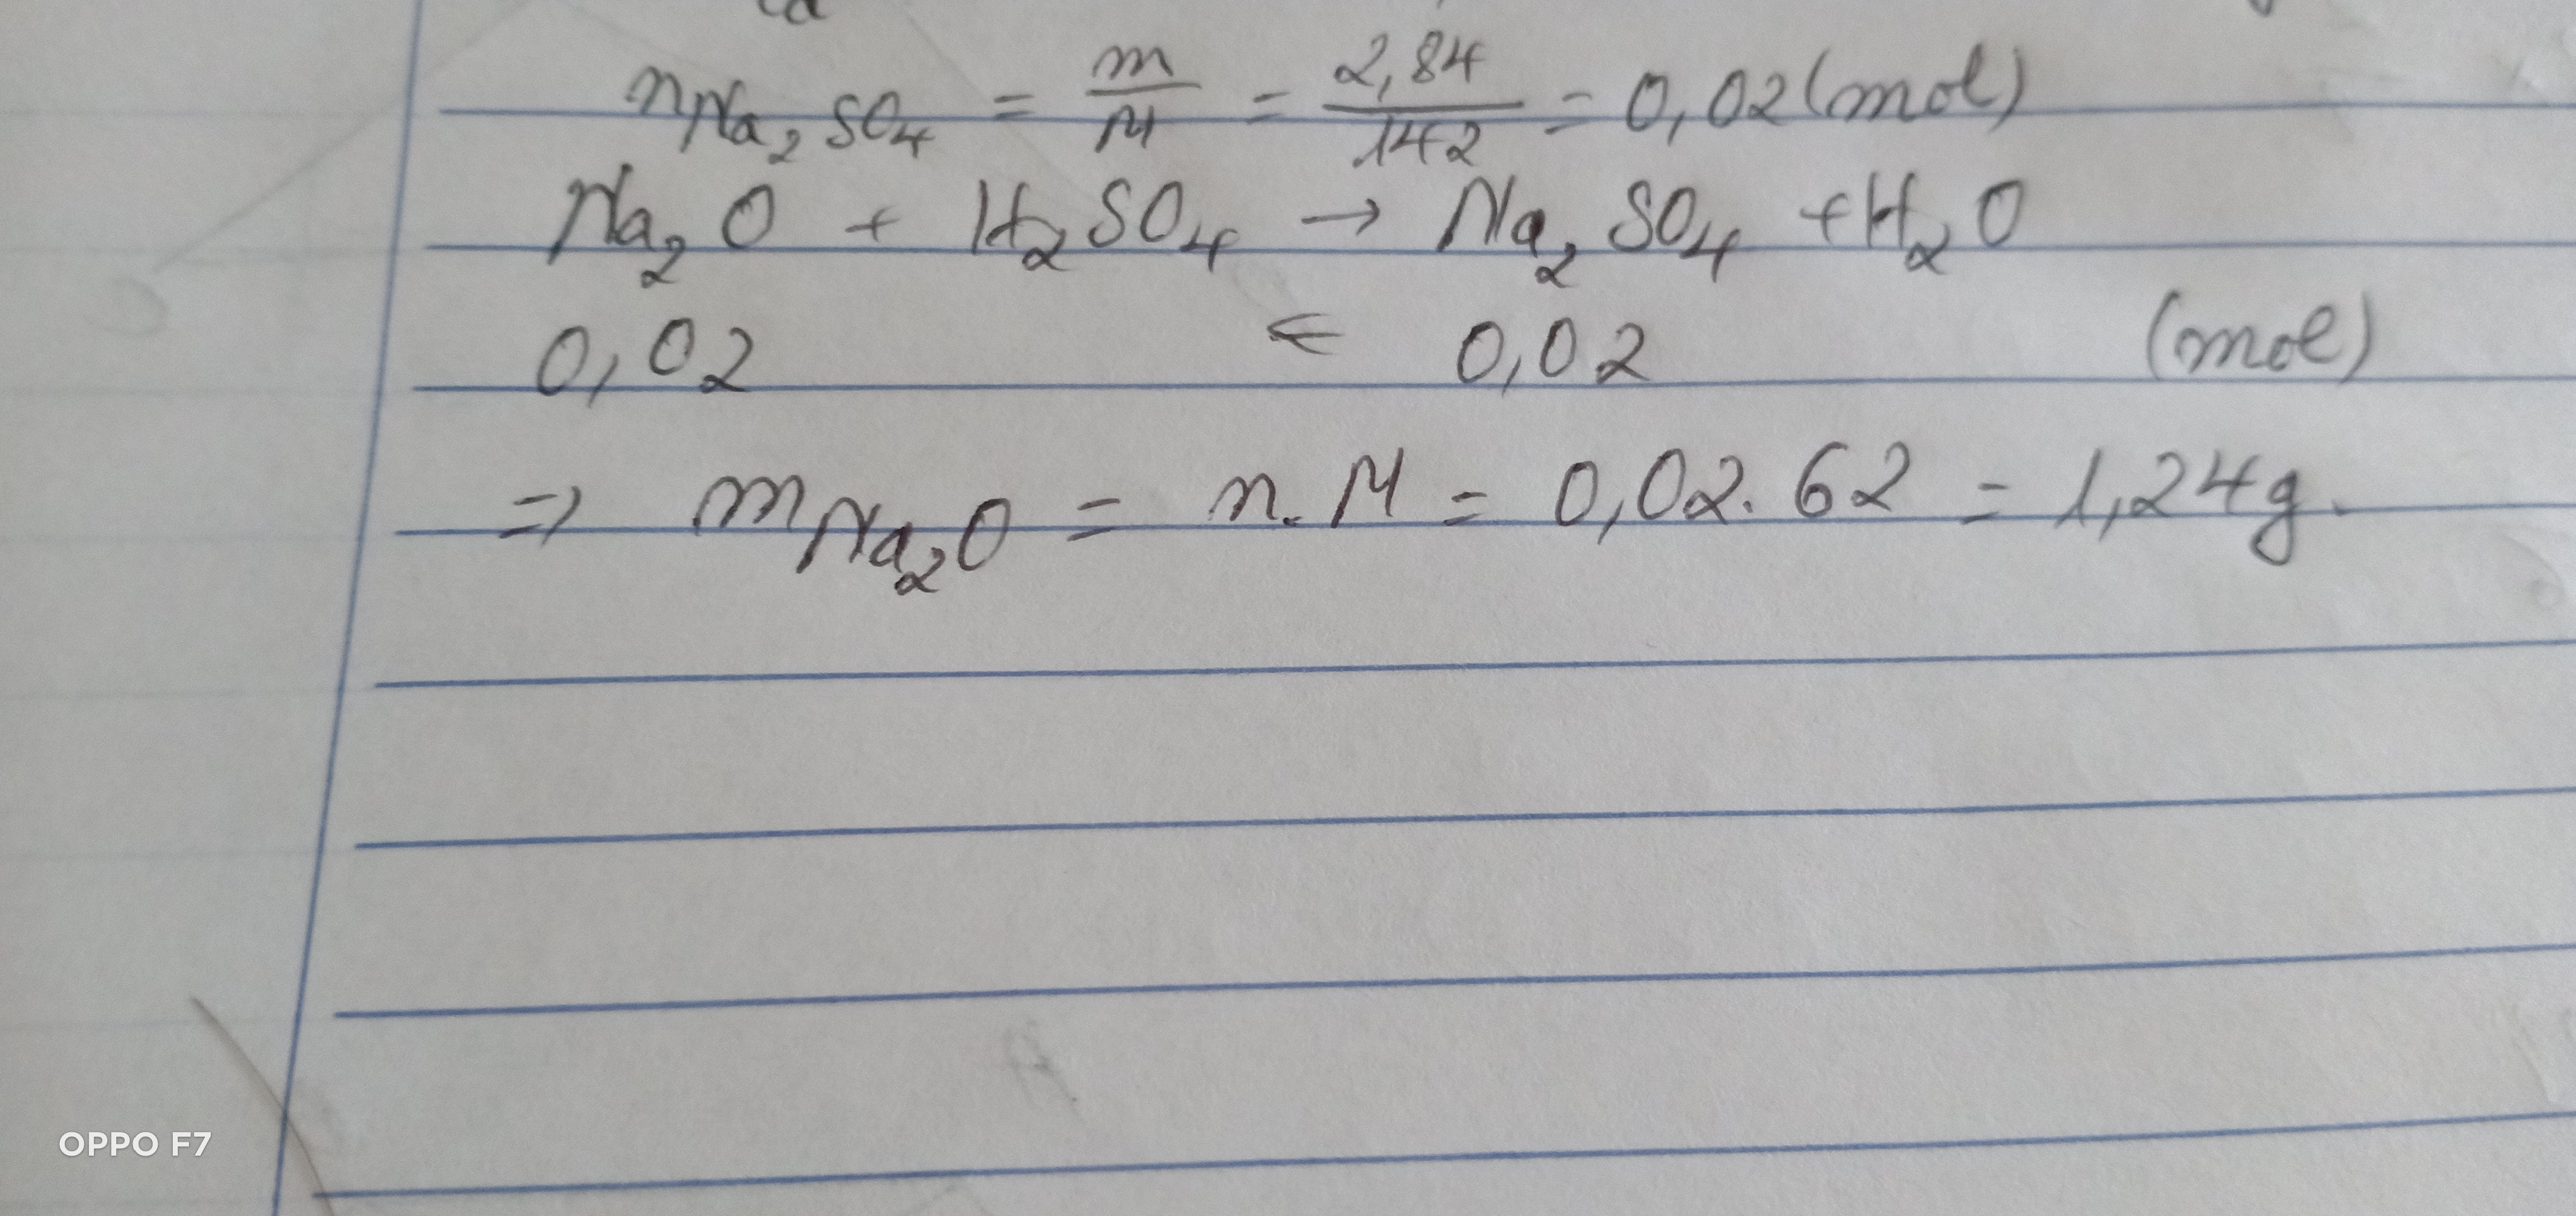 nNa₂SO₄ = m/M = 2,84/142 = 0,02 (mol)
Na₂O + H₂SO₄ → Na₂SO₄ + H₂O
0,02 ← 0,02 (mol)
⇒ mNa₂O = n.M = 0,02.62 = 1,24g.
OPPO F7